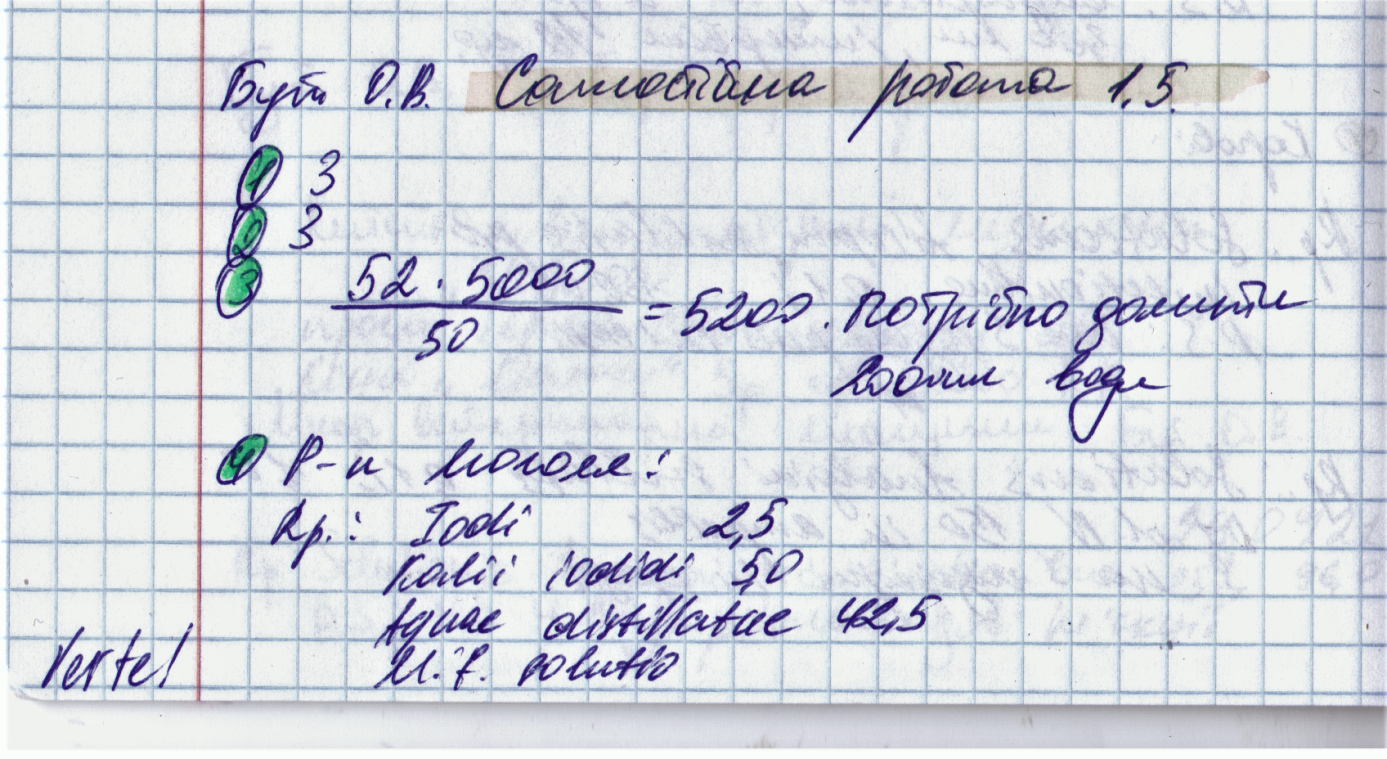 Бутт О.В. Самостійна робота 1.5.
1 3
2 3
3 52 . 5000 / 50 = 5200. Потрібно долити
200мл води
4 Р-н Люголя:
Rp.: Iodi 2,5
Kalii iodidi 5,0
Aquae distillatae 42,5
M.f. solutio
Vertel